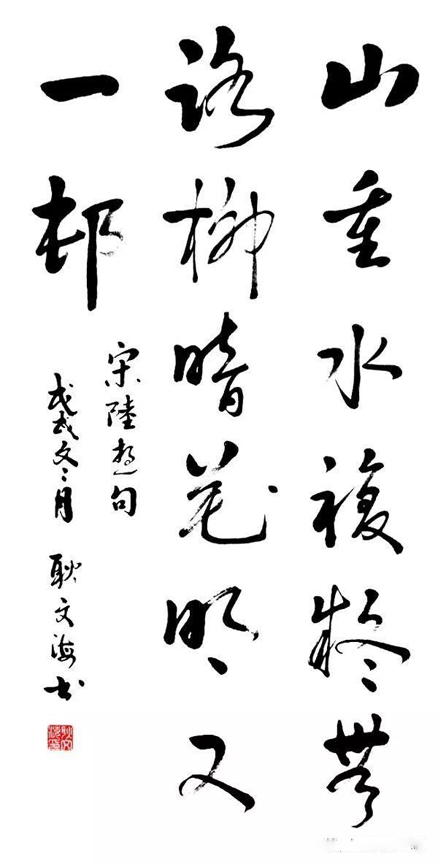 山重水複疑無
路柳暗花明又
一邨
宋陸遊句
戊戌冬月 耿文海书